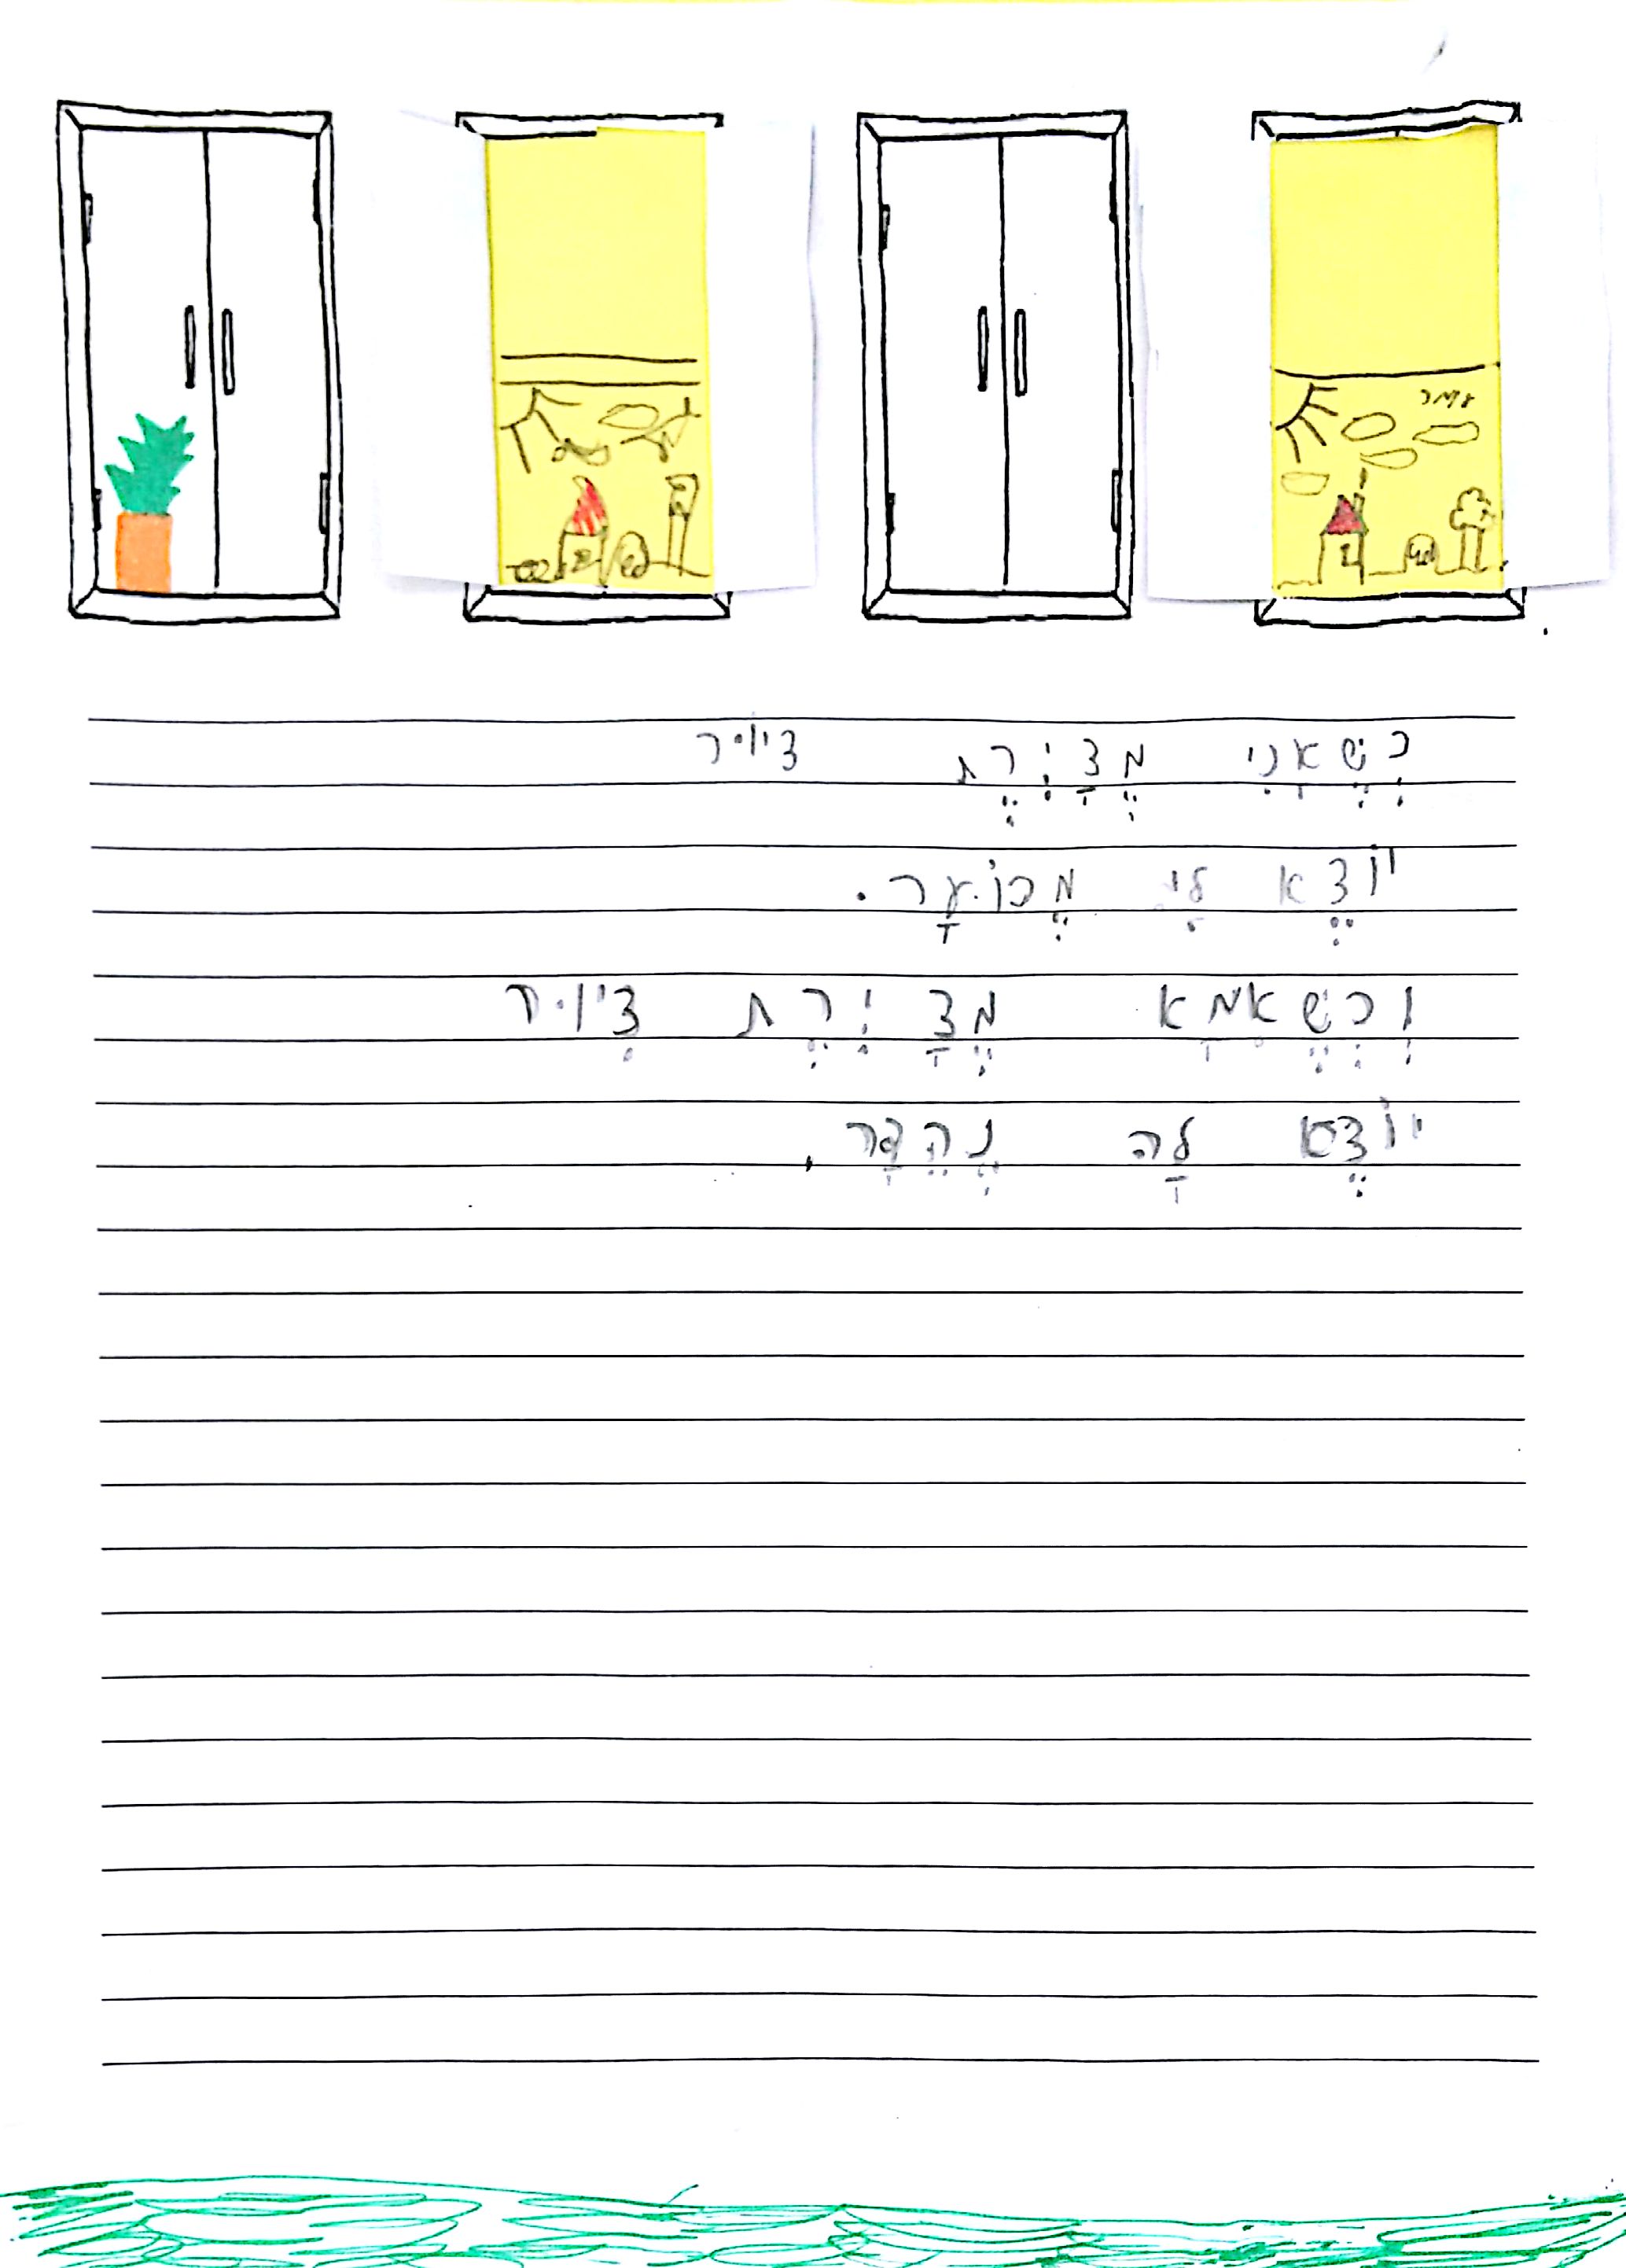 כְּשֶׁאֲנִי מְצַיֶּרֶת ציור
יוֹצֵא לִי מְכוֹעָר.
וּכְשֶׁאִמָא מְצַיֶּרֶת צִיור
יוֹצֵא לָה נֶהֶדָר.